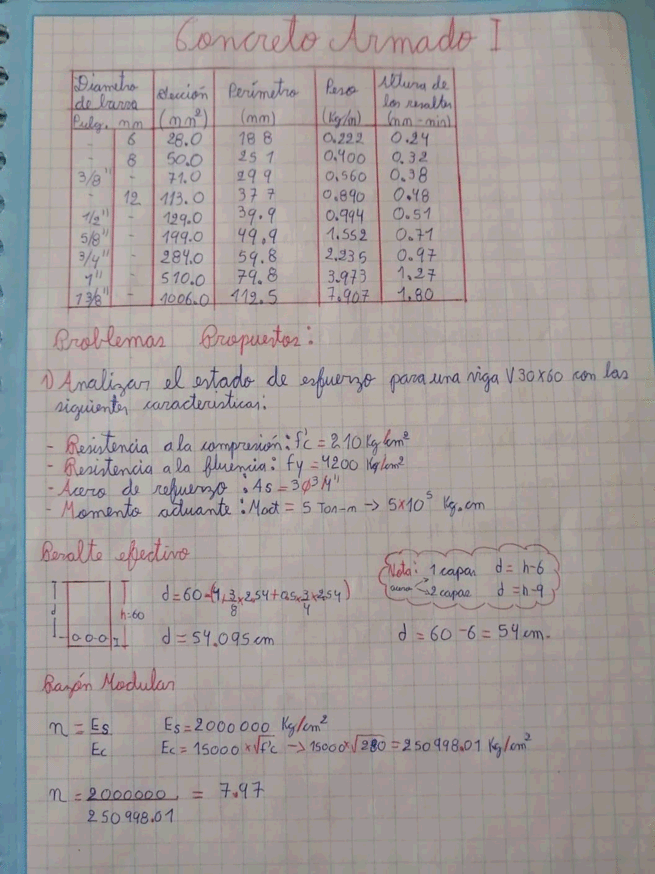 Concreto Armado I
Diametro de barra | Sección | Perímetro | Peso | Altura de los resaltes
Pulg. | mm | (mm²) | (mm) | (Kg/m) | (mm-min)
- | 6 | 28.0 | 18 8 | 0.222 | 0.24
- | 8 | 50.0 | 25 1 | 0.400 | 0.32
3/8" | - | 71.0 | 29 9 | 0.560 | 0.38
- | 12 | 113.0 | 37 7 | 0.890 | 0.48
1/2" | - | 129.0 | 39.9 | 0.994 | 0.51
5/8" | - | 199.0 | 49.9 | 1.552 | 0.71
3/4" | - | 284.0 | 59.8 | 2.235 | 0.97
1" | - | 510.0 | 79.8 | 3.973 | 1.27
1 3/8" | - | 1006.0 | 112.5 | 7.907 | 1.80
Problemas Propuestos:
1) Analizar el estado de esfuerzo para una viga V30x60 con las
siguientes caracteristicas:
- Resistencia a la compresión: f'c = 210 Kg/cm²
- Resistencia a la fluencia: fy = 4200 Kg/cm²
- Acero de refuerzo: As = 3Ø3/4"
- Momento actuante: Mact = 5 Ton-m -> 5x10⁵ Kg.cm
Peralte efectivo
Nota: 1 capa: d = h-6
acero 2 capas d = h-9
d h=60
d = 60-(4+3/8x2.54+0.5x3/4x2.54)
d = 54.095 cm
d = 60-6 = 54 cm.
Razón Modular
n = Es/Ec Es = 2000000 Kg/cm²
Ec = 15000 x √f'c -> 15000x√280 = 250998.01 Kg/cm²
n = 2000000/250998.01 = 7.97